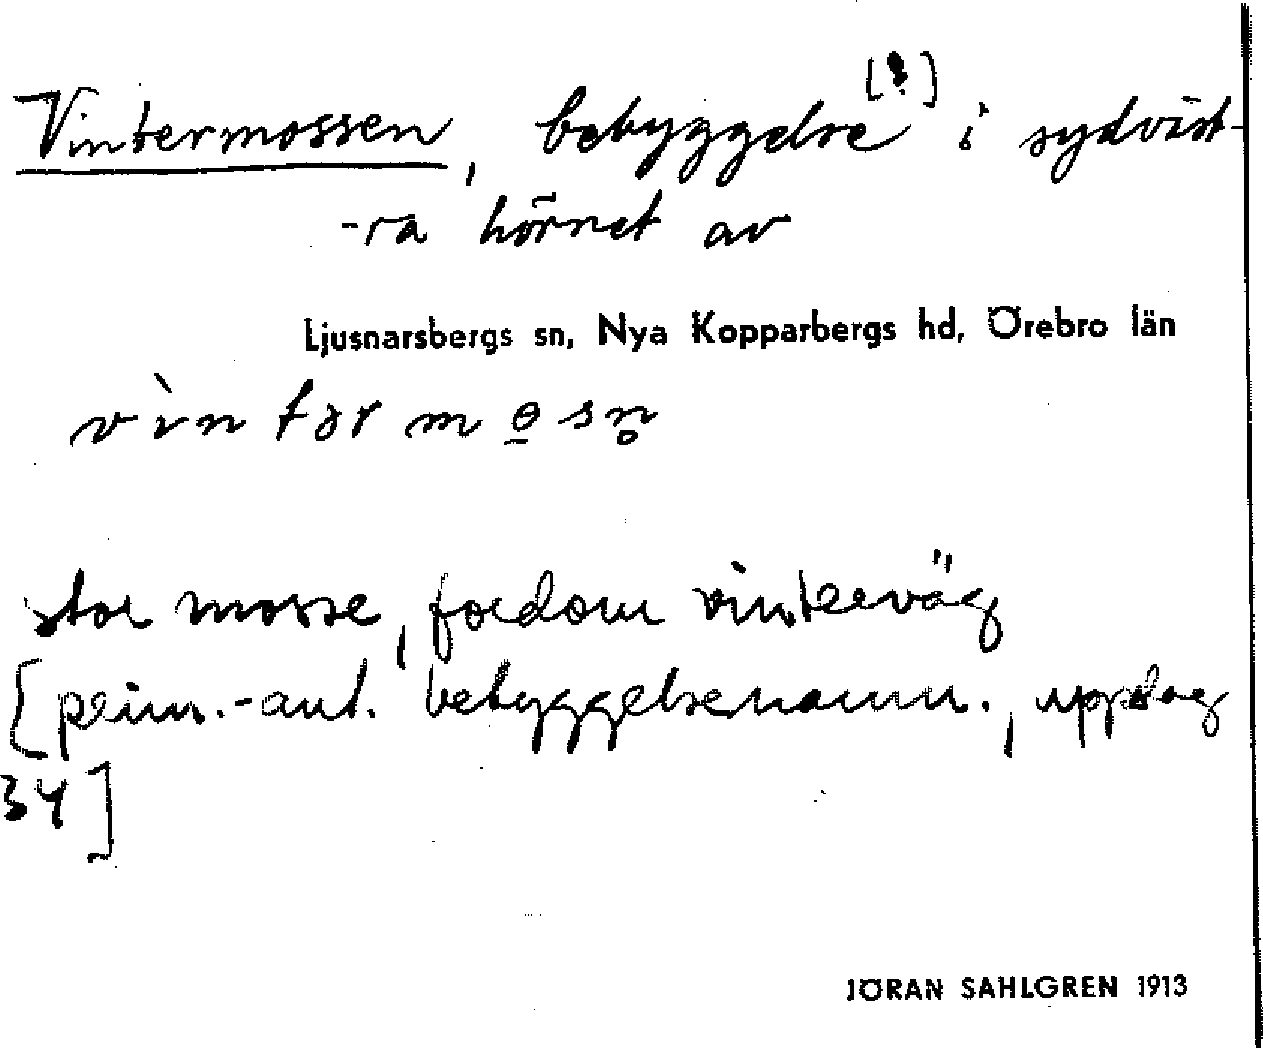 Vintermossen, bebyggelse [?] i sydväst-
-ra hörnet av
Ljusnarsbergs sn, Nya Kopparbergs hd, Örebro län
vìntərmɵ̠sn̥
stor mosse, fordom vinterväg
[prim.-ant. bebyggelsenamn., uppslag
34]
JÖRAN SAHLGREN 1913